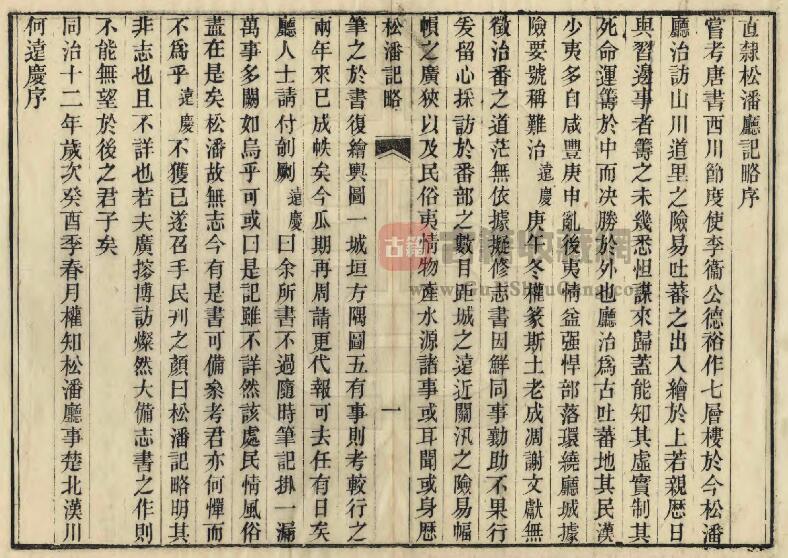 直隸松潘廳記略序
嘗考唐書西川節度使李衞公德裕作七層樓於今松潘
廳治訪山川道里之險易吐蕃之出入繪於上若親歴日
與習邊事者籌之未幾悉怛謀來歸蓋能知其虛實制其
死命運籌於中而决勝於外也廳治爲古吐蕃地其民漢
少夷多自咸豐庚申亂後夷情益强悍部落環繞廳城據
險要號稱難治遠慶庚午冬權篆斯土老成凋謝文獻無
徵治番之道茫無依據擬修志書因鮮同事勷助不果行
爰留心採訪於番部之數目距城之遠近關汛之險易幅
幀之廣狹以及民俗夷情物產水源諸事或耳聞或身歴
松潘記略
一
筆之於書復繪輿圖一城垣方隅圖五有事則考較行之
兩年來已成帙矣今瓜期再周請更代報可去任有日矣
廳人士請付剞劂遠慶曰余所書不過隨時筆記掛一漏
萬事多闕如烏乎可或曰是記雖不詳然該處民情風俗
盡在是矣松潘故無志今有是書可備叅考君亦何憚而
不爲乎遠慶不獲已遂召手民刋之顏曰松潘記略明其
非志也且不詳也若夫廣搜博訪燦然大備志書之作則
不能無望於後之君子矣
同治十二年歲次癸酉季春月權知松潘廳事楚北漢川
何遠慶序
古籍
古籍收藏網
www.GuJiShouCang.com